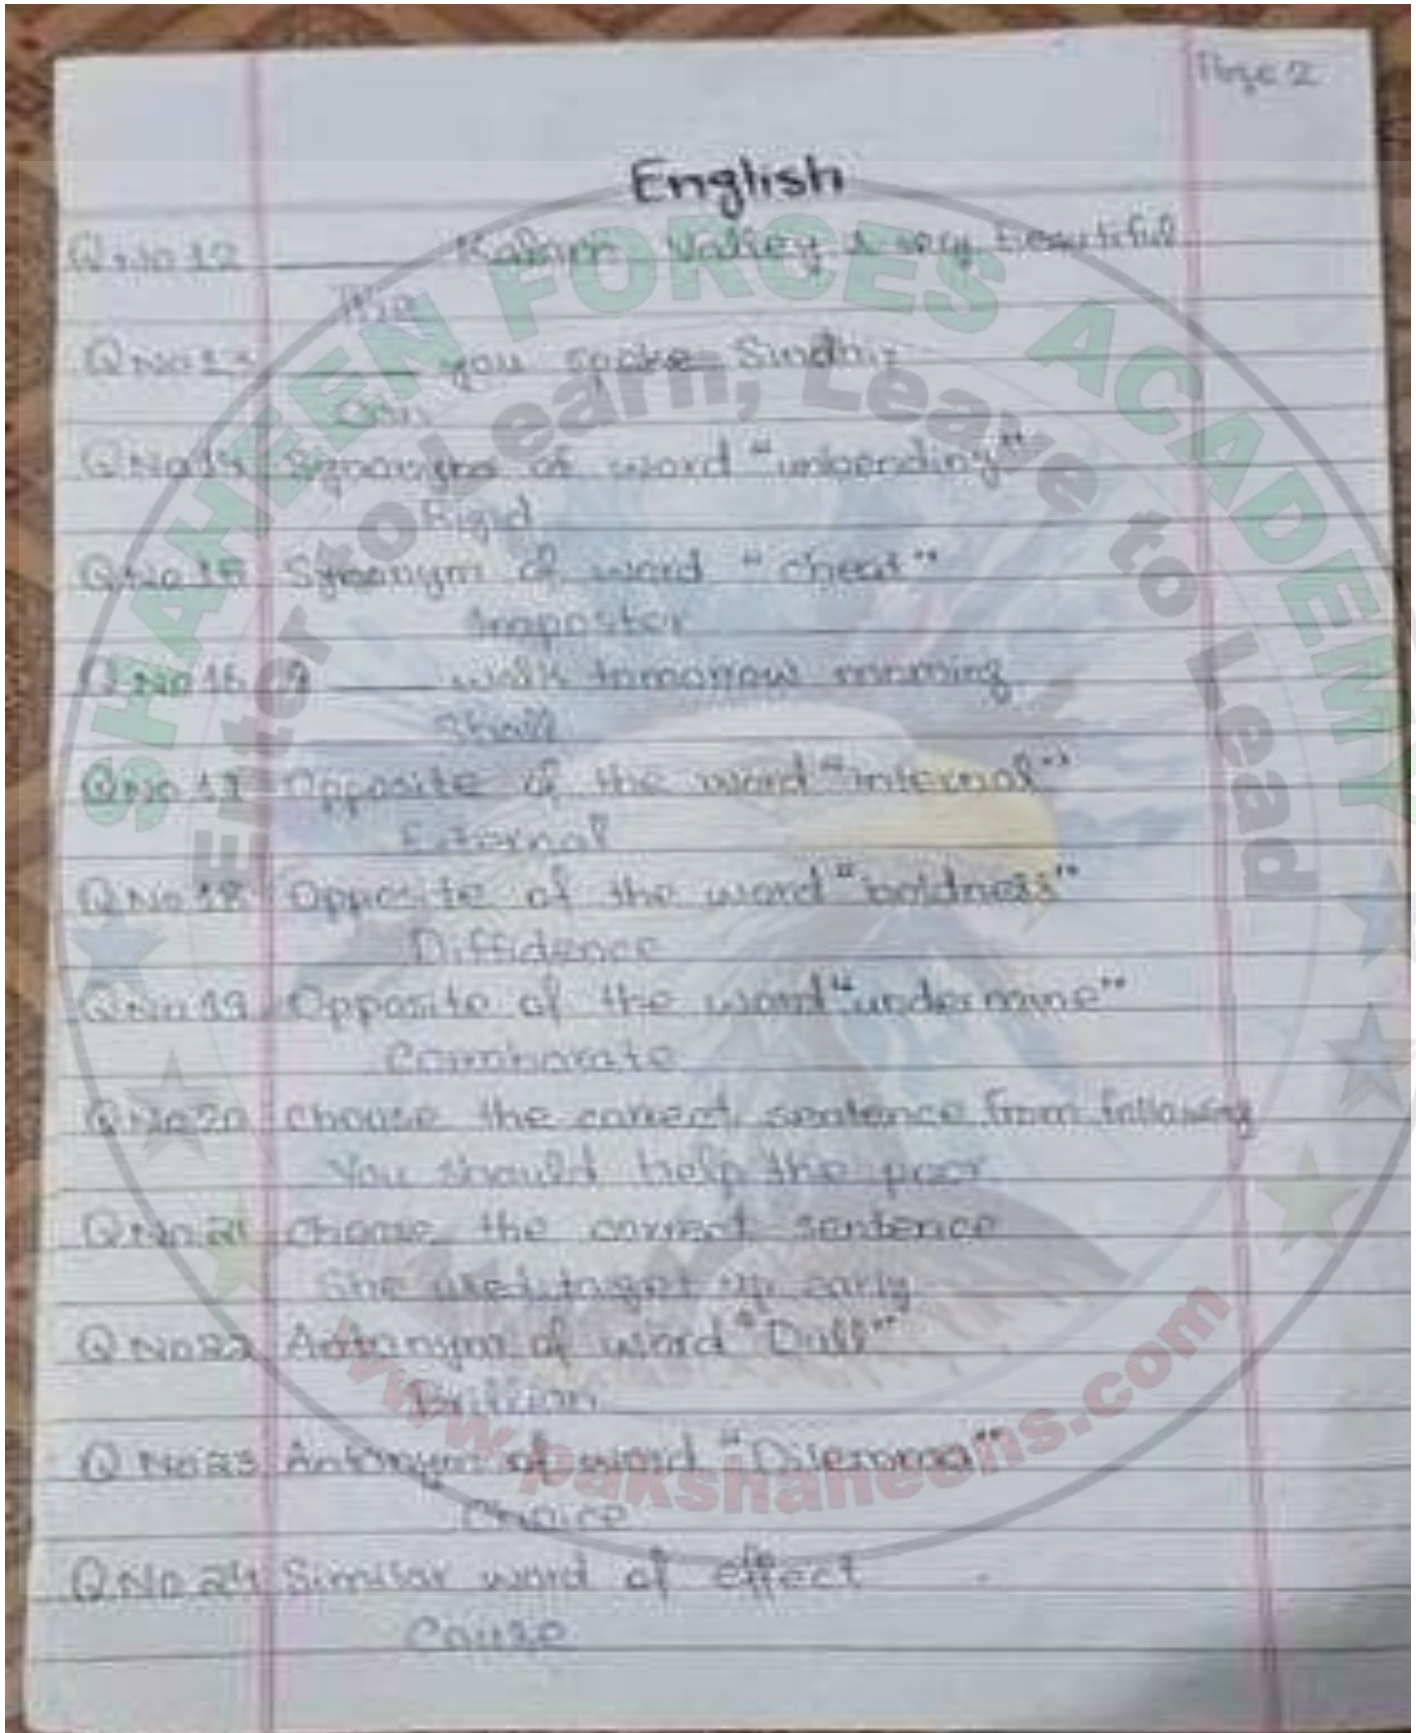 Page 2
English
Q No 12 ____ Kalam Valley is very beautiful
The
Q No 13 ____ you spoke Sindhi?
Can
Q No 14 Synonym of word "unbending"
Rigid
Q No 15 Synonym of word "cheat"
Imposter
Q No 16 I ____ walk tomorrow morning
Shall
Q No 17 Opposite of the word "internal"
External
Q No 18 Opposite of the word "boldness"
Diffidence
Q No 19 Opposite of the word "undermine"
Q No 20 Choose the correct sentence from following
You should help the poor
Q No 21 Choose the correct sentence
She used to get up early
Q No 22 Antonym of word "Dull"
Q No 23 Antonym of word "Dilemma"
Choice
Q No 24 Similar word of effect
Cause
SHAHEEN FORCES ACADEMY
Enter to Learn, Leave to Lead
www.pakshaheens.com